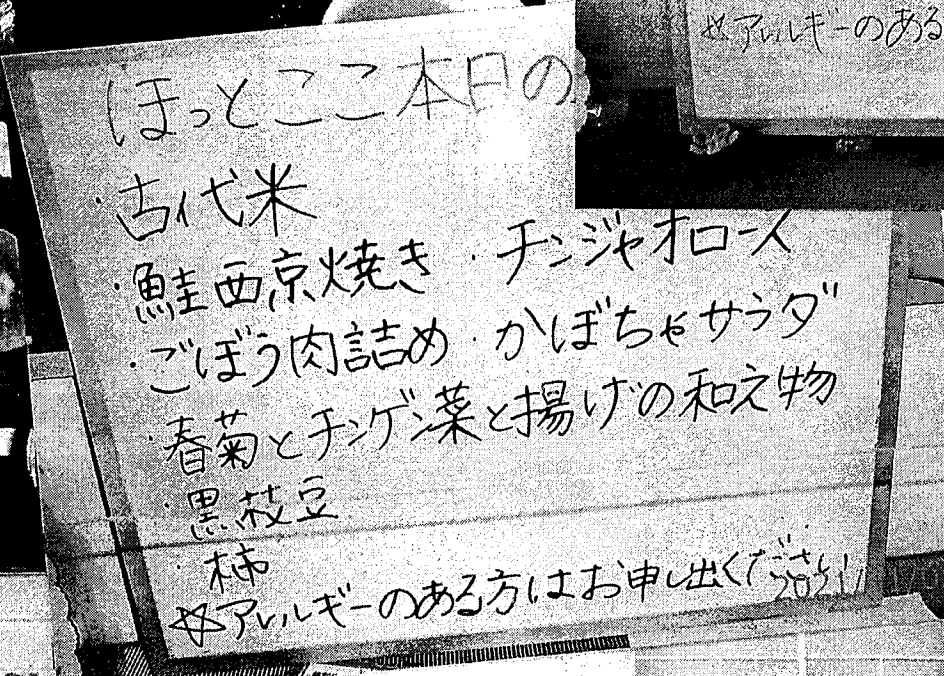 ほっとここ本日の
・古代米
・鮭西京焼き ・チンジャオロース
・ごぼう肉詰め ・かぼちゃサラダ
・春菊とチンゲン菜と揚げの和え物
・黒枝豆
・柿
☆アレルギーのある方はお申し出ください
☆アレルギーのある